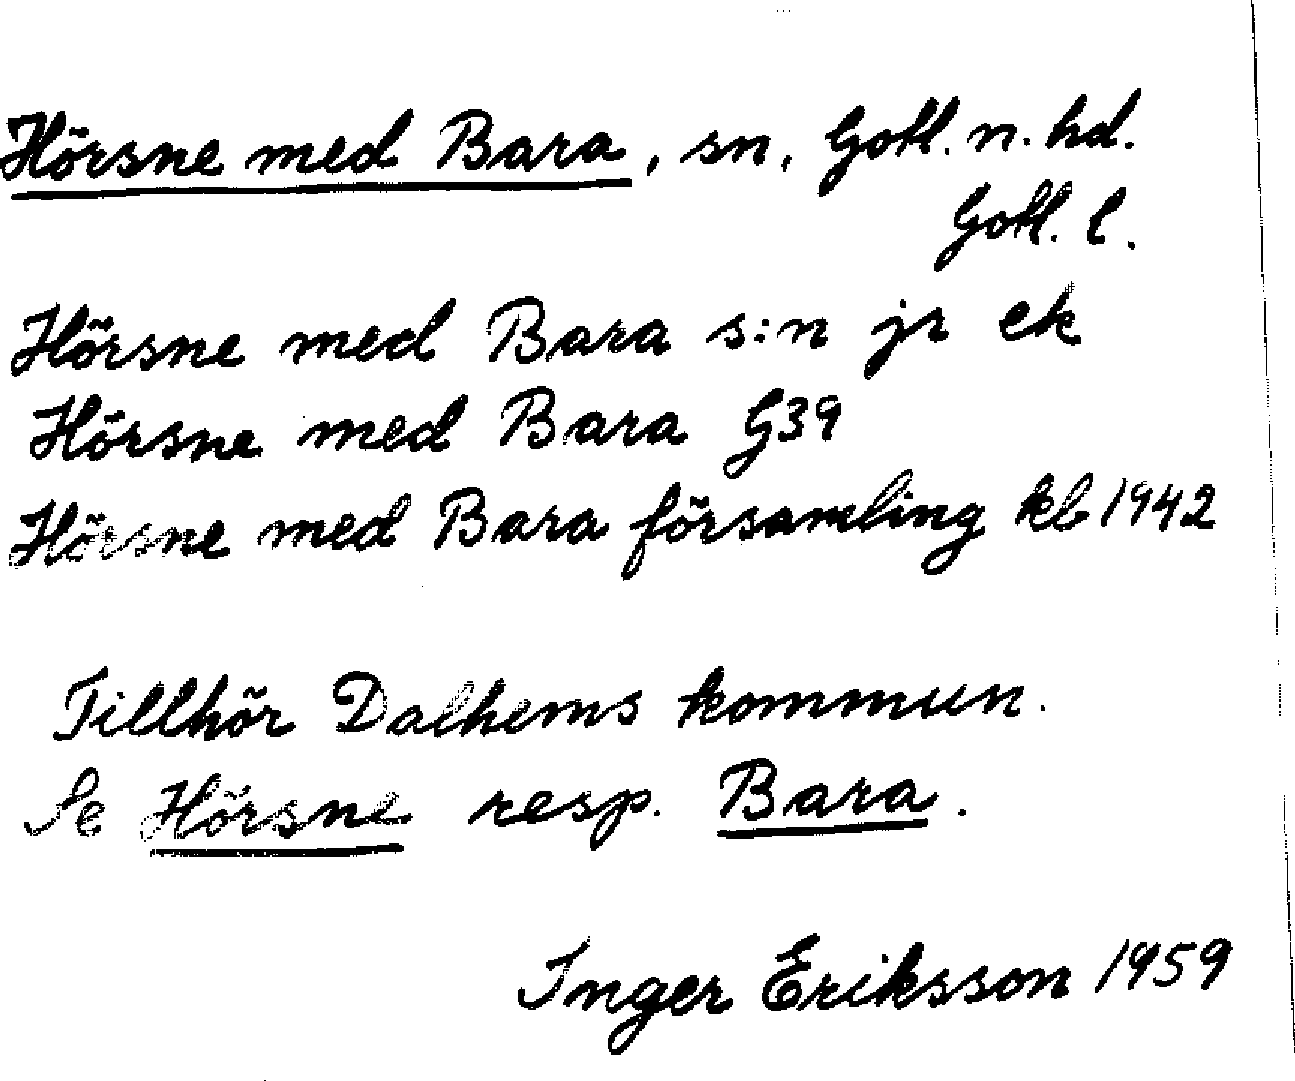 Hörsne med Bara, sn, Gotl. n. hd.
Gotl. l.
Hörsne med Bara s:n jr ek
Hörsne med Bara G39
Hörsne med Bara församling kb 1942
Tillhör Dalhems kommun.
Se Hörsne resp. Bara.
Inger Eriksson 1959